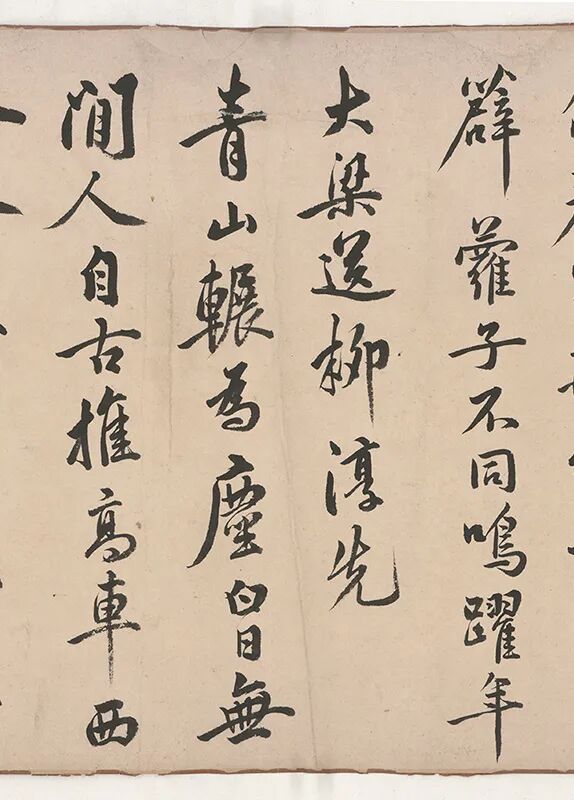 薜蘿子不同鳴躍年
大梁送柳淳先
青山輾為塵白日無
閒人自古推高車西